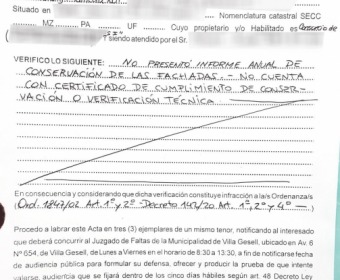 Situado en
.... Nomenclatura catastral SECC
........ MZ ........ PA ........ UF ........ Cuyo propietario y/o Habilitado es Consorcio de
y siendo atendido por el Sr.
VERIFICO LO SIGUIENTE: NO PRESENTÓ INFORME ANUAL DE
CONSERVACIÓN DE LAS FACHADAS. - NO CUENTA
CON CERTIFICADO DE CUMPLIMIENTO DE CONSER-
VACIÓN O VERIFICACIÓN TÉCNICA
En consecuencia y considerando que dicha verificación constituye infracción a la/s Ordenanza/s
(Ord. 1847/02 Art. 1º, 2º - Decreto 147/20 Art. 1º, 2º y 4º —.)
Procedo a labrar este Acta en tres (3) ejemplares de un mismo tenor, notificando al interesado
que deberá concurrir al Juzgado de Faltas de la Municipalidad de Villa Gesell, ubicado en Av. 6
Nº 654, de Villa Gesell, de Lunes a Viernes en el horario de 8:30 a 13:30, a fin de notificarse fecha
de audiencia pública para formular su defensa, ofrecer y producir la prueba de que intente
valerse, audiencia que se fijará dentro de los cinco días hábiles según art. 48 Decreto Ley